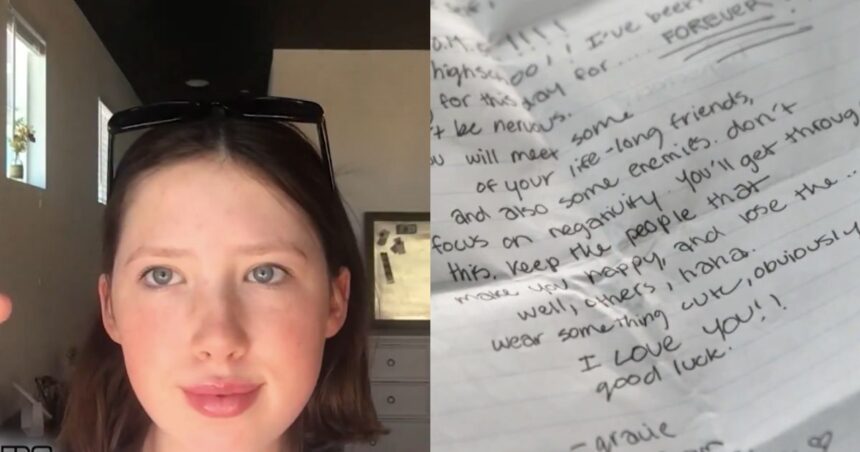 !!!!
highschool!! I've been
for this day for.... FOREVER
't be nervous.
u will meet some
of your life-long friends,
and also some enemies. don't
focus on negativity. you'll get throug
this. keep the people that
make you happy, and lose the...
well, others, haha.
wear something cute, obviously
I LOVE YOU!!
good luck.
- gracie